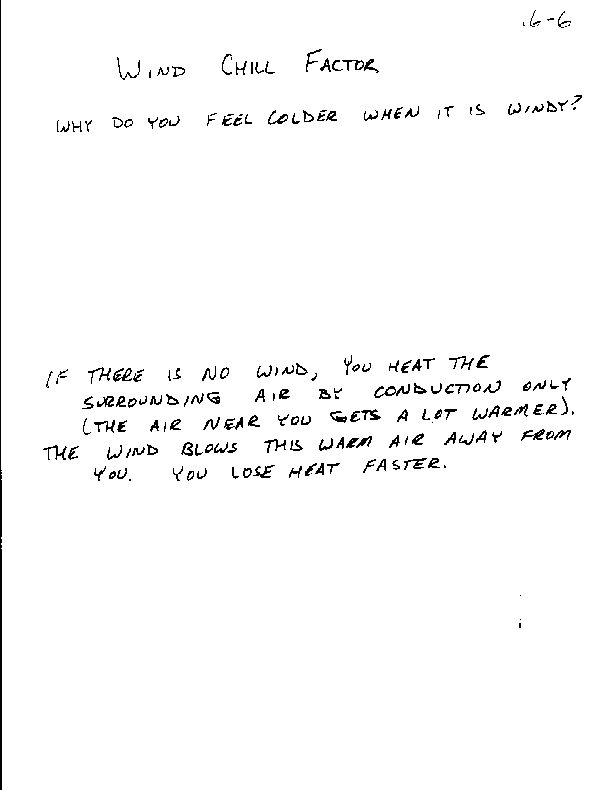 .6-6
WIND CHILL FACTOR
WHY DO YOU FEEL COLDER WHEN IT IS WINDY?
IF THERE IS NO WIND, YOU HEAT THE
SURROUNDING AIR BY CONDUCTION ONLY
(THE AIR NEAR YOU GETS A LOT WARMER).
THE WIND BLOWS THIS WARM AIR AWAY FROM
YOU. YOU LOSE HEAT FASTER.